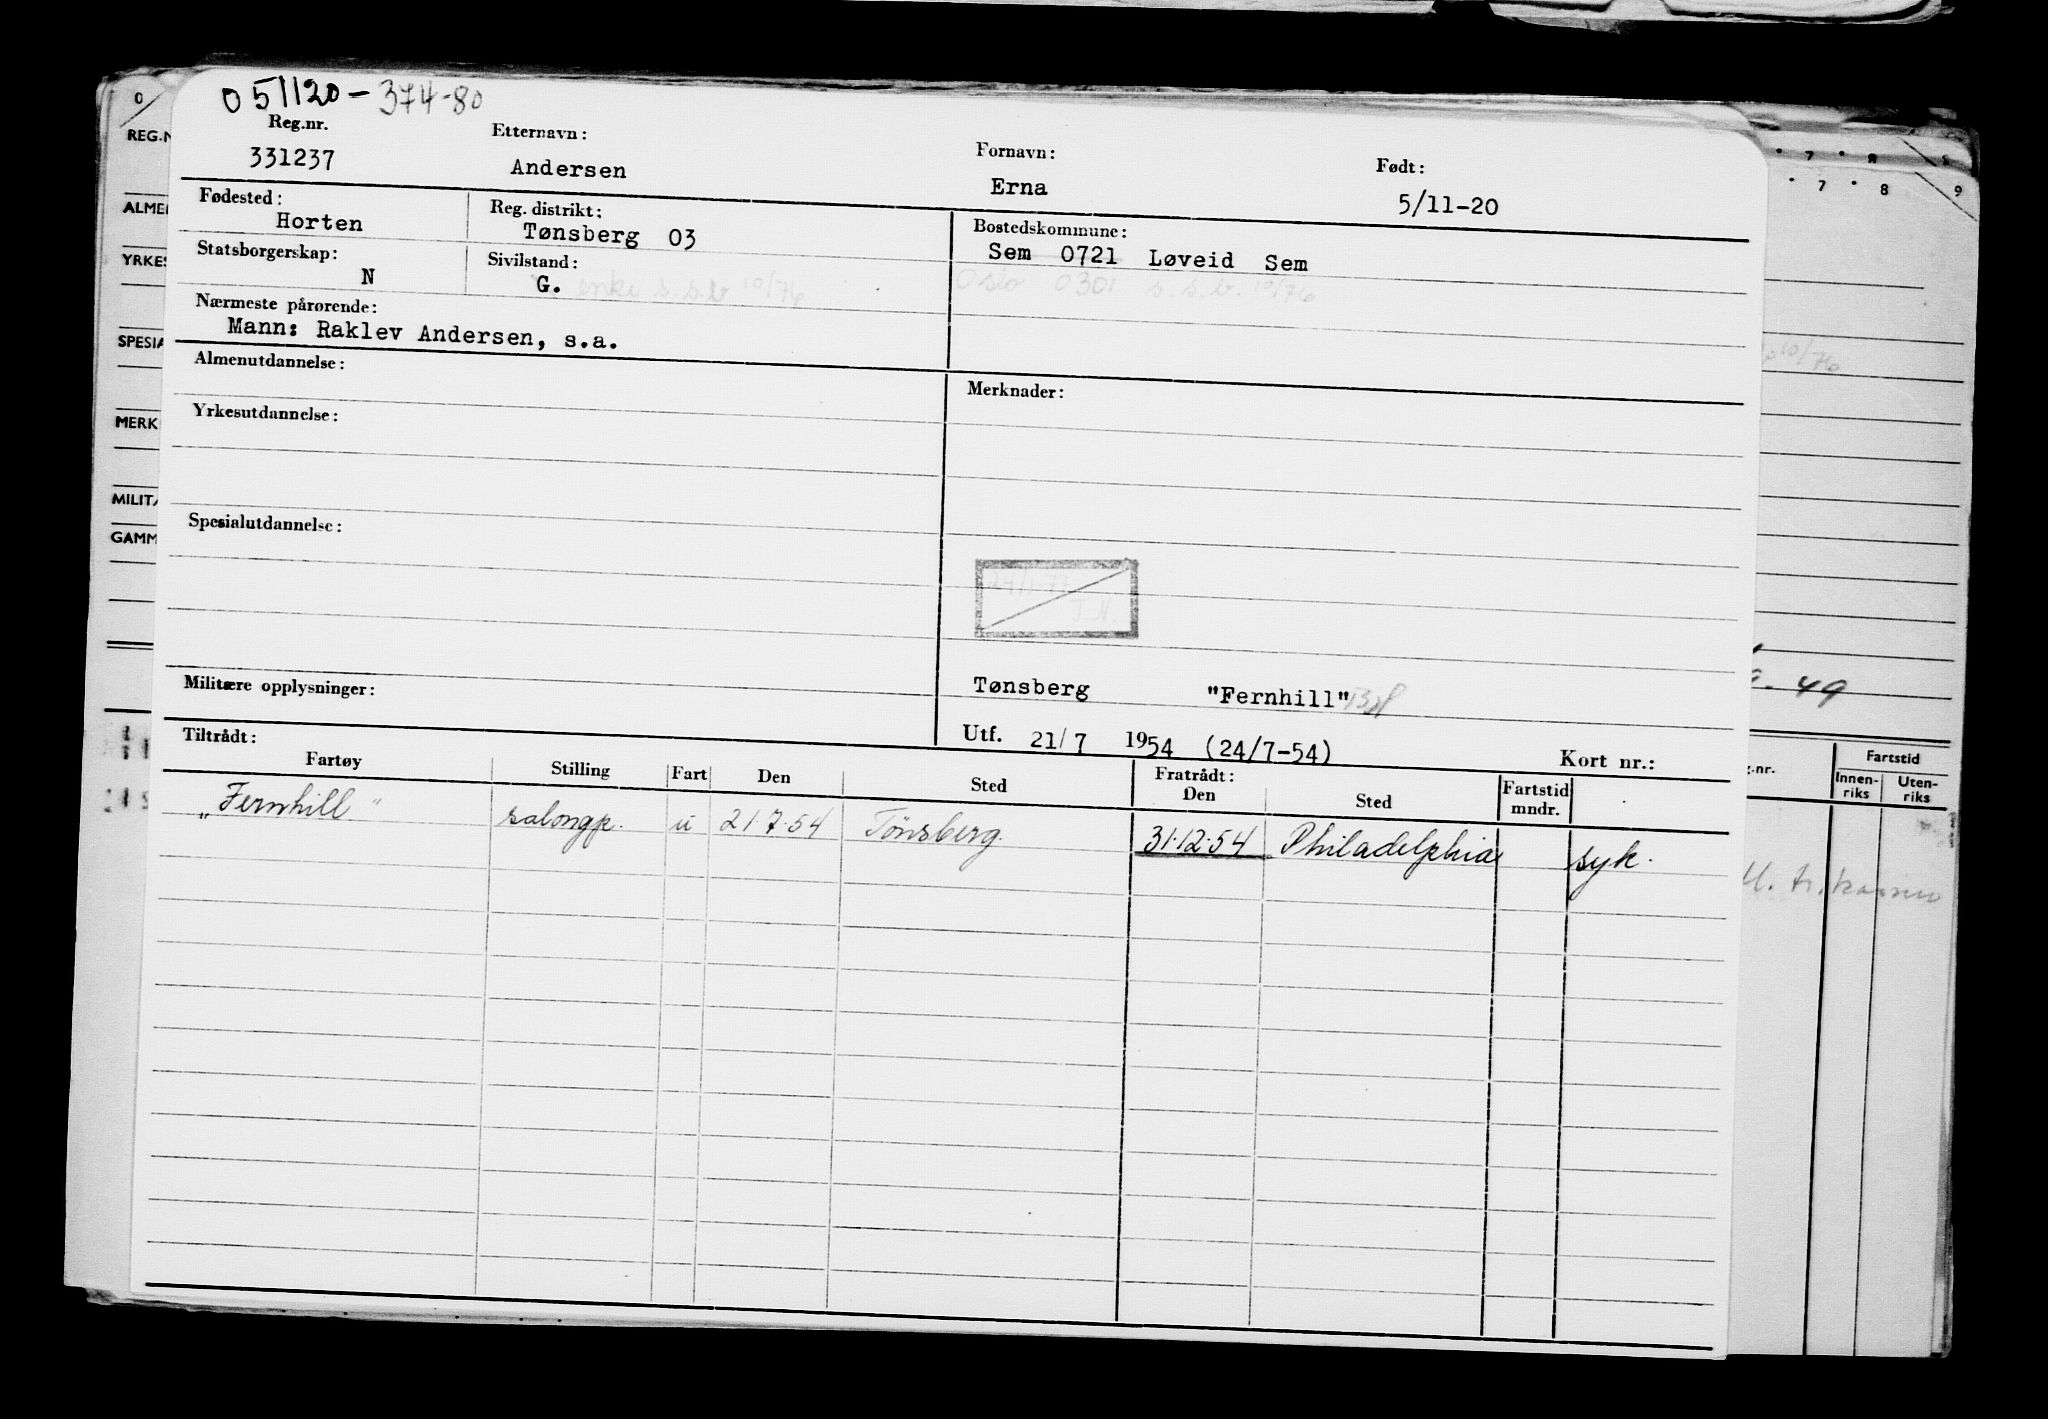 051120-374-80
Reg.nr. Etternavn: Fornavn: Født:
331237 Andersen Erna 5/11-20
Fødested: Reg. distrikt: Bostedskommune:
Horten Tønsberg 03 Sem 0721 Løveid Sem
Statsborgerskap: Sivilstand:
N G. enke s.s.b 10/76 Oslo 0301 s.s.b. 10/76
Nærmeste pårørende:
Mann: Raklev Andersen, s.a.
Almenutdannelse: Merknader:
Yrkesutdannelse:
Spesialutdannelse:
Militære opplysninger: Tønsberg "Fernhill"
Utf. 21/7 1954 (24/7-54) Kort nr.:
Tiltrådt: Fratrådt:
Fartøy Stilling Fart Den Sted Den Sted Fartstid mndr.
"Fernhill" salongp. u 21.7.54 Tönsberg. 31.12.54 Philadelphia syk.
O
REG.N
ALME
YRKES
SPESIA
MERK
MILITÆ
GAMM
7 8
7 8 9
10/76
49
.nr. Fartstid
Innen-riks Uten-riks